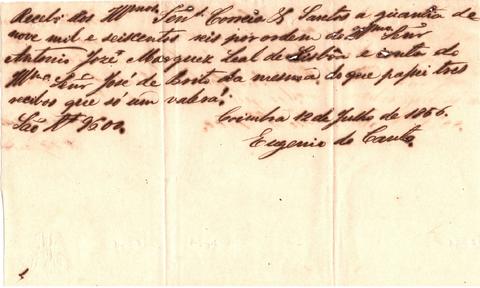 Recebi dos Illmos Senrs Correia & Santos a quantia de
nove mil e seiscentos reis por ordem do Illmo Senr
Antonio José Marques Leal de Lisbôa e conta do
Illmo Senr José de Brito da mesma, do que passei tres
recibos que só um valera!
São Rs 9600.
Coimbra 12 de Julho de 1866.
Eugenio do Canto.